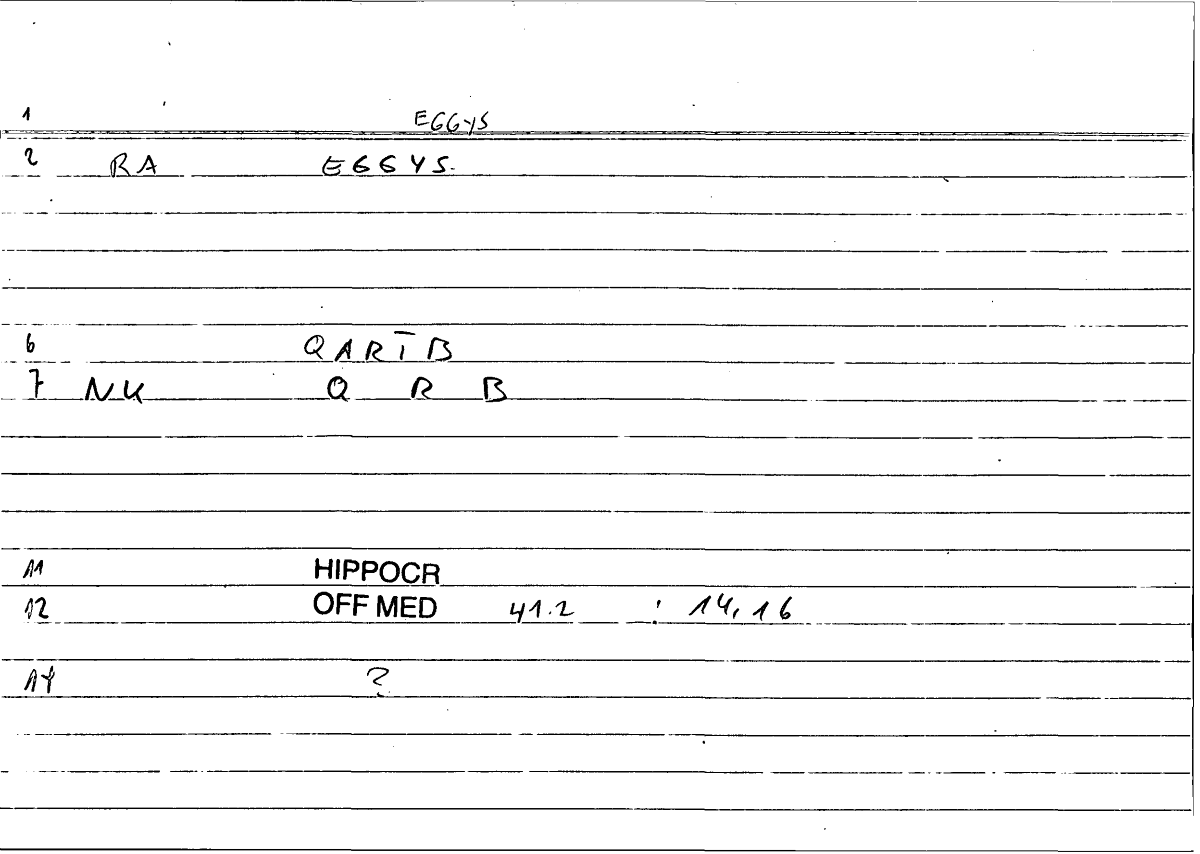 1 EGGYS
2 RA EGGYS.
6 QARĪB
7 NK Q R B
11 HIPPOCR
12 OFF MED 41.2 : 14,16
14 ?